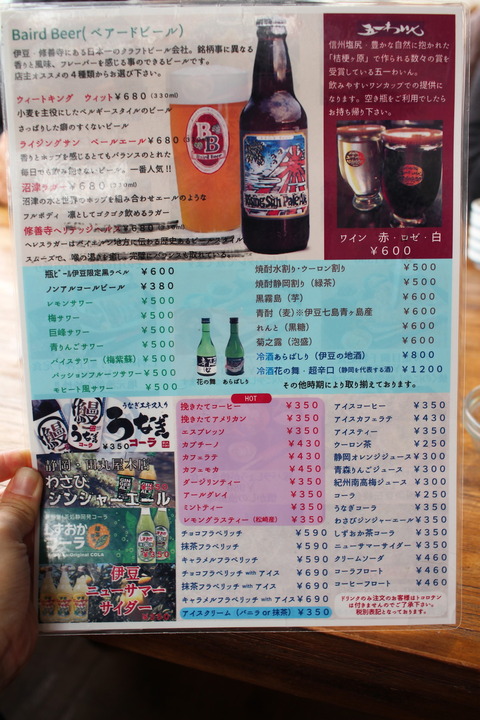 Baird Beer(ベアードビール)
伊豆・修善寺にある日本一のクラフトビール会社。銘柄事に異なる
香りと風味、フレーバーを感じる事のできるビールです。
店主オススメの4種類からお選び下さい。
ウィートキング ウィット¥680(330ml)
小麦を主役にしたベルギースタイルのビール
さっぱりした癖のすくないビール
ライジングサン ペールエール¥680
香りとホップを感じるとてもバランスのとれた
毎日でも飲み飽きないビール。一番人気!!
沼津ラガー¥680(330ml)
沼津の水と世界のホップを組み合わせエールのような
フルボディ 凛としてゴクゴク飲めるラガー
修善寺ヘリテッジヘレス¥680(330ml)
ヘレスラガーはバイエルン地方に伝わる歴史あるビールスタイル
スムーズで、喉の渇を癒し完璧にバランスを取れている。
B
B
Baird Beer
Rising Sun Pale Ale
五一わいん
信州塩尻・豊かな自然に抱かれた
「桔梗ヶ原」で作られる数々の賞を
受賞している五一わいん。
飲みやすいワンカップでの提供に
なります。空き瓶をご利用でしたら
お持ち帰り下さい。
ワイン 赤・ロゼ・白
¥600
瓶ビール伊豆限定黒ラベル ¥600
ノンアルコールビール ¥380
レモンサワー ¥500
梅サワー ¥500
巨峰サワー ¥500
青りんごサワー ¥500
バイスサワー(梅紫蘇) ¥500
パッションフルーツサワー ¥500
モヒート風サワー ¥500
焼酎水割り・ウーロン割り ¥500
焼酎静岡割り(緑茶) ¥500
黒霧島(芋) ¥600
青酎(麦)※伊豆七島青ヶ島産 ¥600
れんと(黒糖) ¥600
菊之露(泡盛) ¥600
冷酒あらばしり(伊豆の地酒) ¥800
冷酒花の舞・超辛口(静岡を代表する酒) ¥1200
その他時期により取り揃えております。
花の舞 あらばしり
うなぎエキス入り
うなぎ
コーラ
¥350
静岡・田丸屋本店
わさび
シンジャーエール
しずおか
コーラ
Original COLA
伊豆
ニューサマー
サイダー
HOT
挽きたてコーヒー ¥350
挽きたてアメリカン ¥350
エスプレッソ ¥350
カプチーノ ¥430
カフェラテ ¥430
カフェモカ ¥450
ダージリンティー ¥350
アールグレイ ¥350
ミントティー ¥350
レモングラスティー(松崎産) ¥350
チョコフラペリッチ ¥590
抹茶フラペリッチ ¥590
キャラメルフラペリッチ ¥590
チョコフラペリッチ with アイス ¥690
抹茶フラペリッチ with アイス ¥690
キャラメルフラペリッチ with アイス ¥690
アイスクリーム(バニラ or 抹茶) ¥350
アイスコーヒー ¥350
アイスカフェラテ ¥430
アイスティー ¥350
ウーロン茶 ¥250
静岡オレンジジュース ¥300
青森りんごジュース ¥300
紀州南高梅ジュース ¥300
コーラ ¥250
うなぎコーラ ¥350
わさびジンジャーエール ¥350
しずおか茶コーラ ¥350
ニューサマーサイダー ¥350
クリームソーダ ¥460
コーラフロート ¥460
コーヒーフロート ¥460
ドリンクのみ注文のお客様はトコロテン
は付きませんのでご了承下さい。
税別表記となっております。